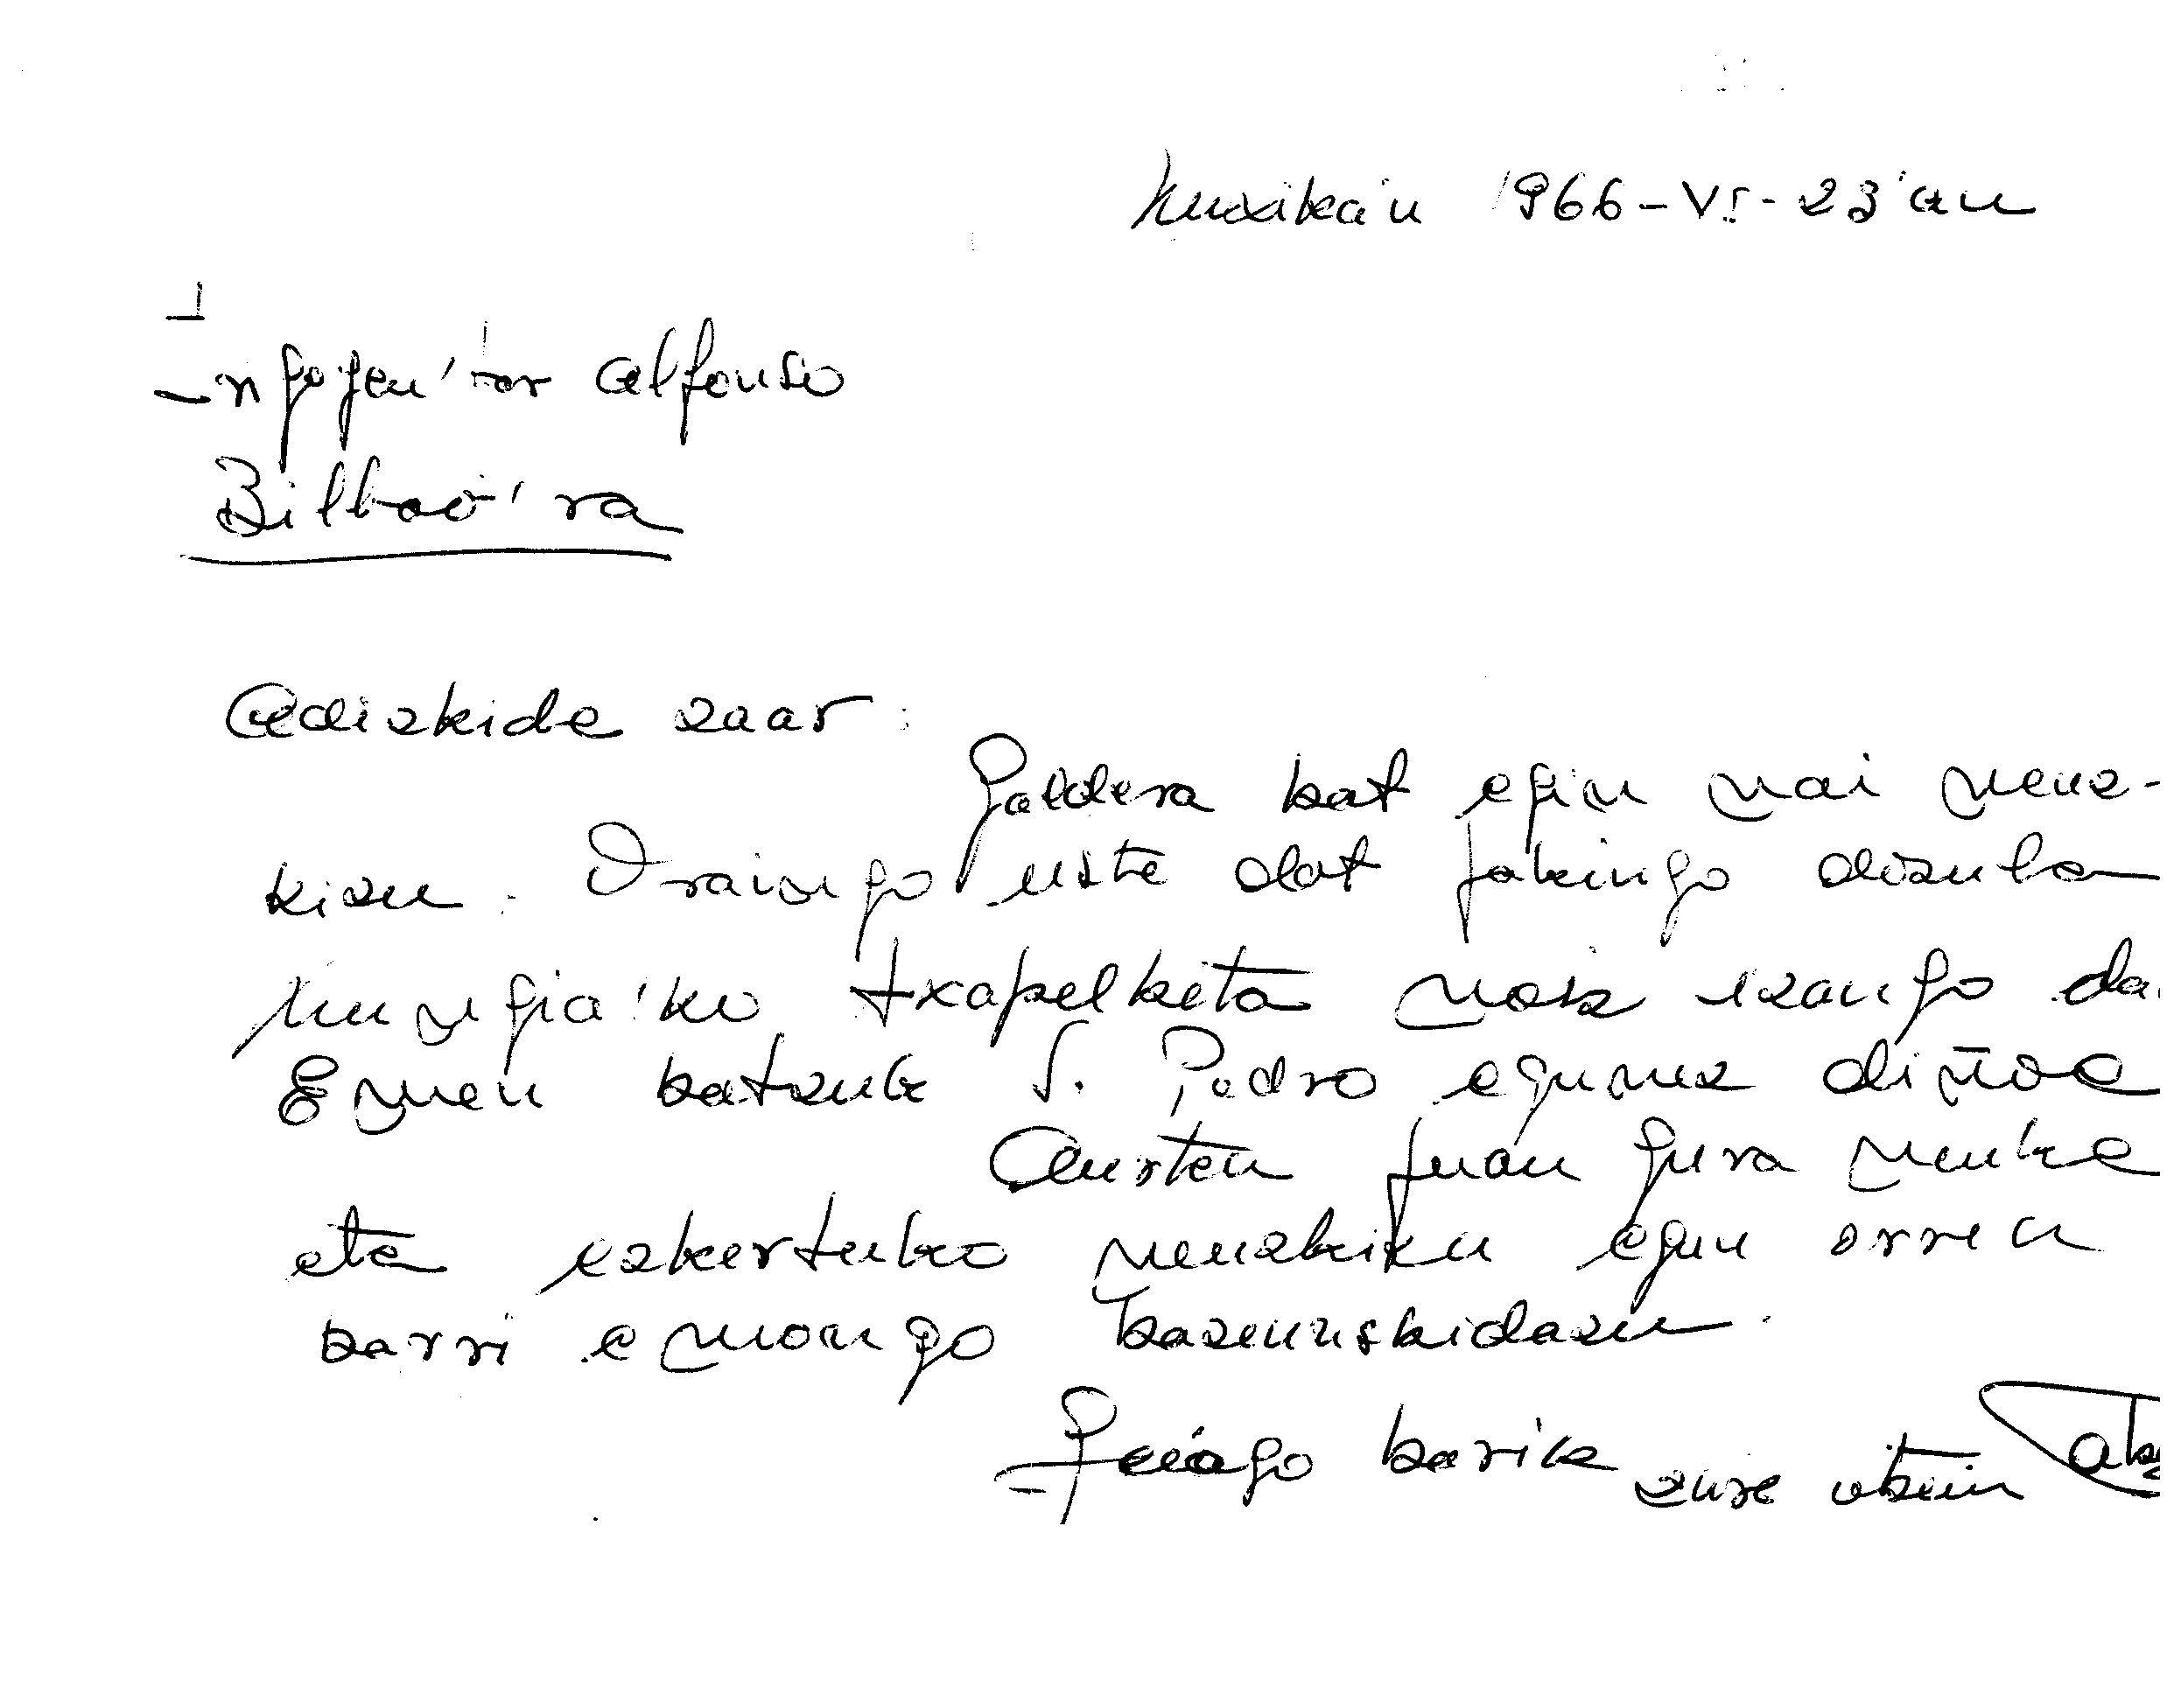 Muxika'n 1966-VI-23'an
Irigoyen'tar Alfonso
Bilbao'ra
Adizkide zaar:
Galdera bat egin nai neuz-
kizu. Oraingo uste dot jakingo dozula
Mungia'ko txapelketa noiz izango da
Emen batzuk S. Pedro egunez diñoe
Aurten juan gura neuke
eta eskertuko neuzkizu egun orren
barri emongo bazeunskidazu.
Geiago barik zure otsein